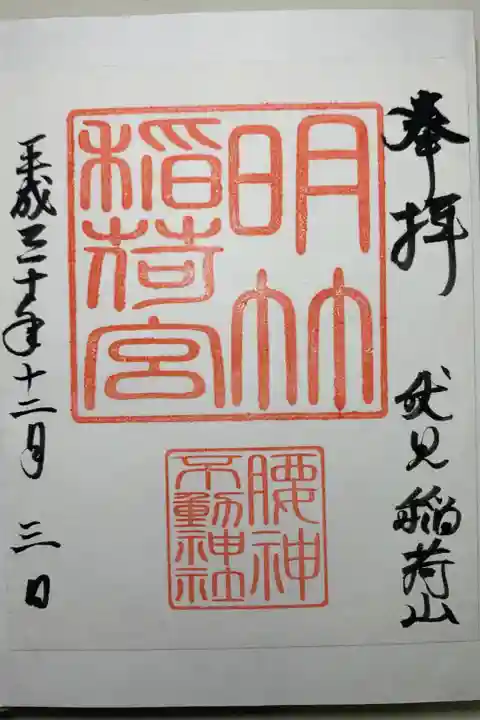 奉拝　伏見稲荷山
明竹
稲荷宮
腰神
不動神社
平成三十年十二月三日